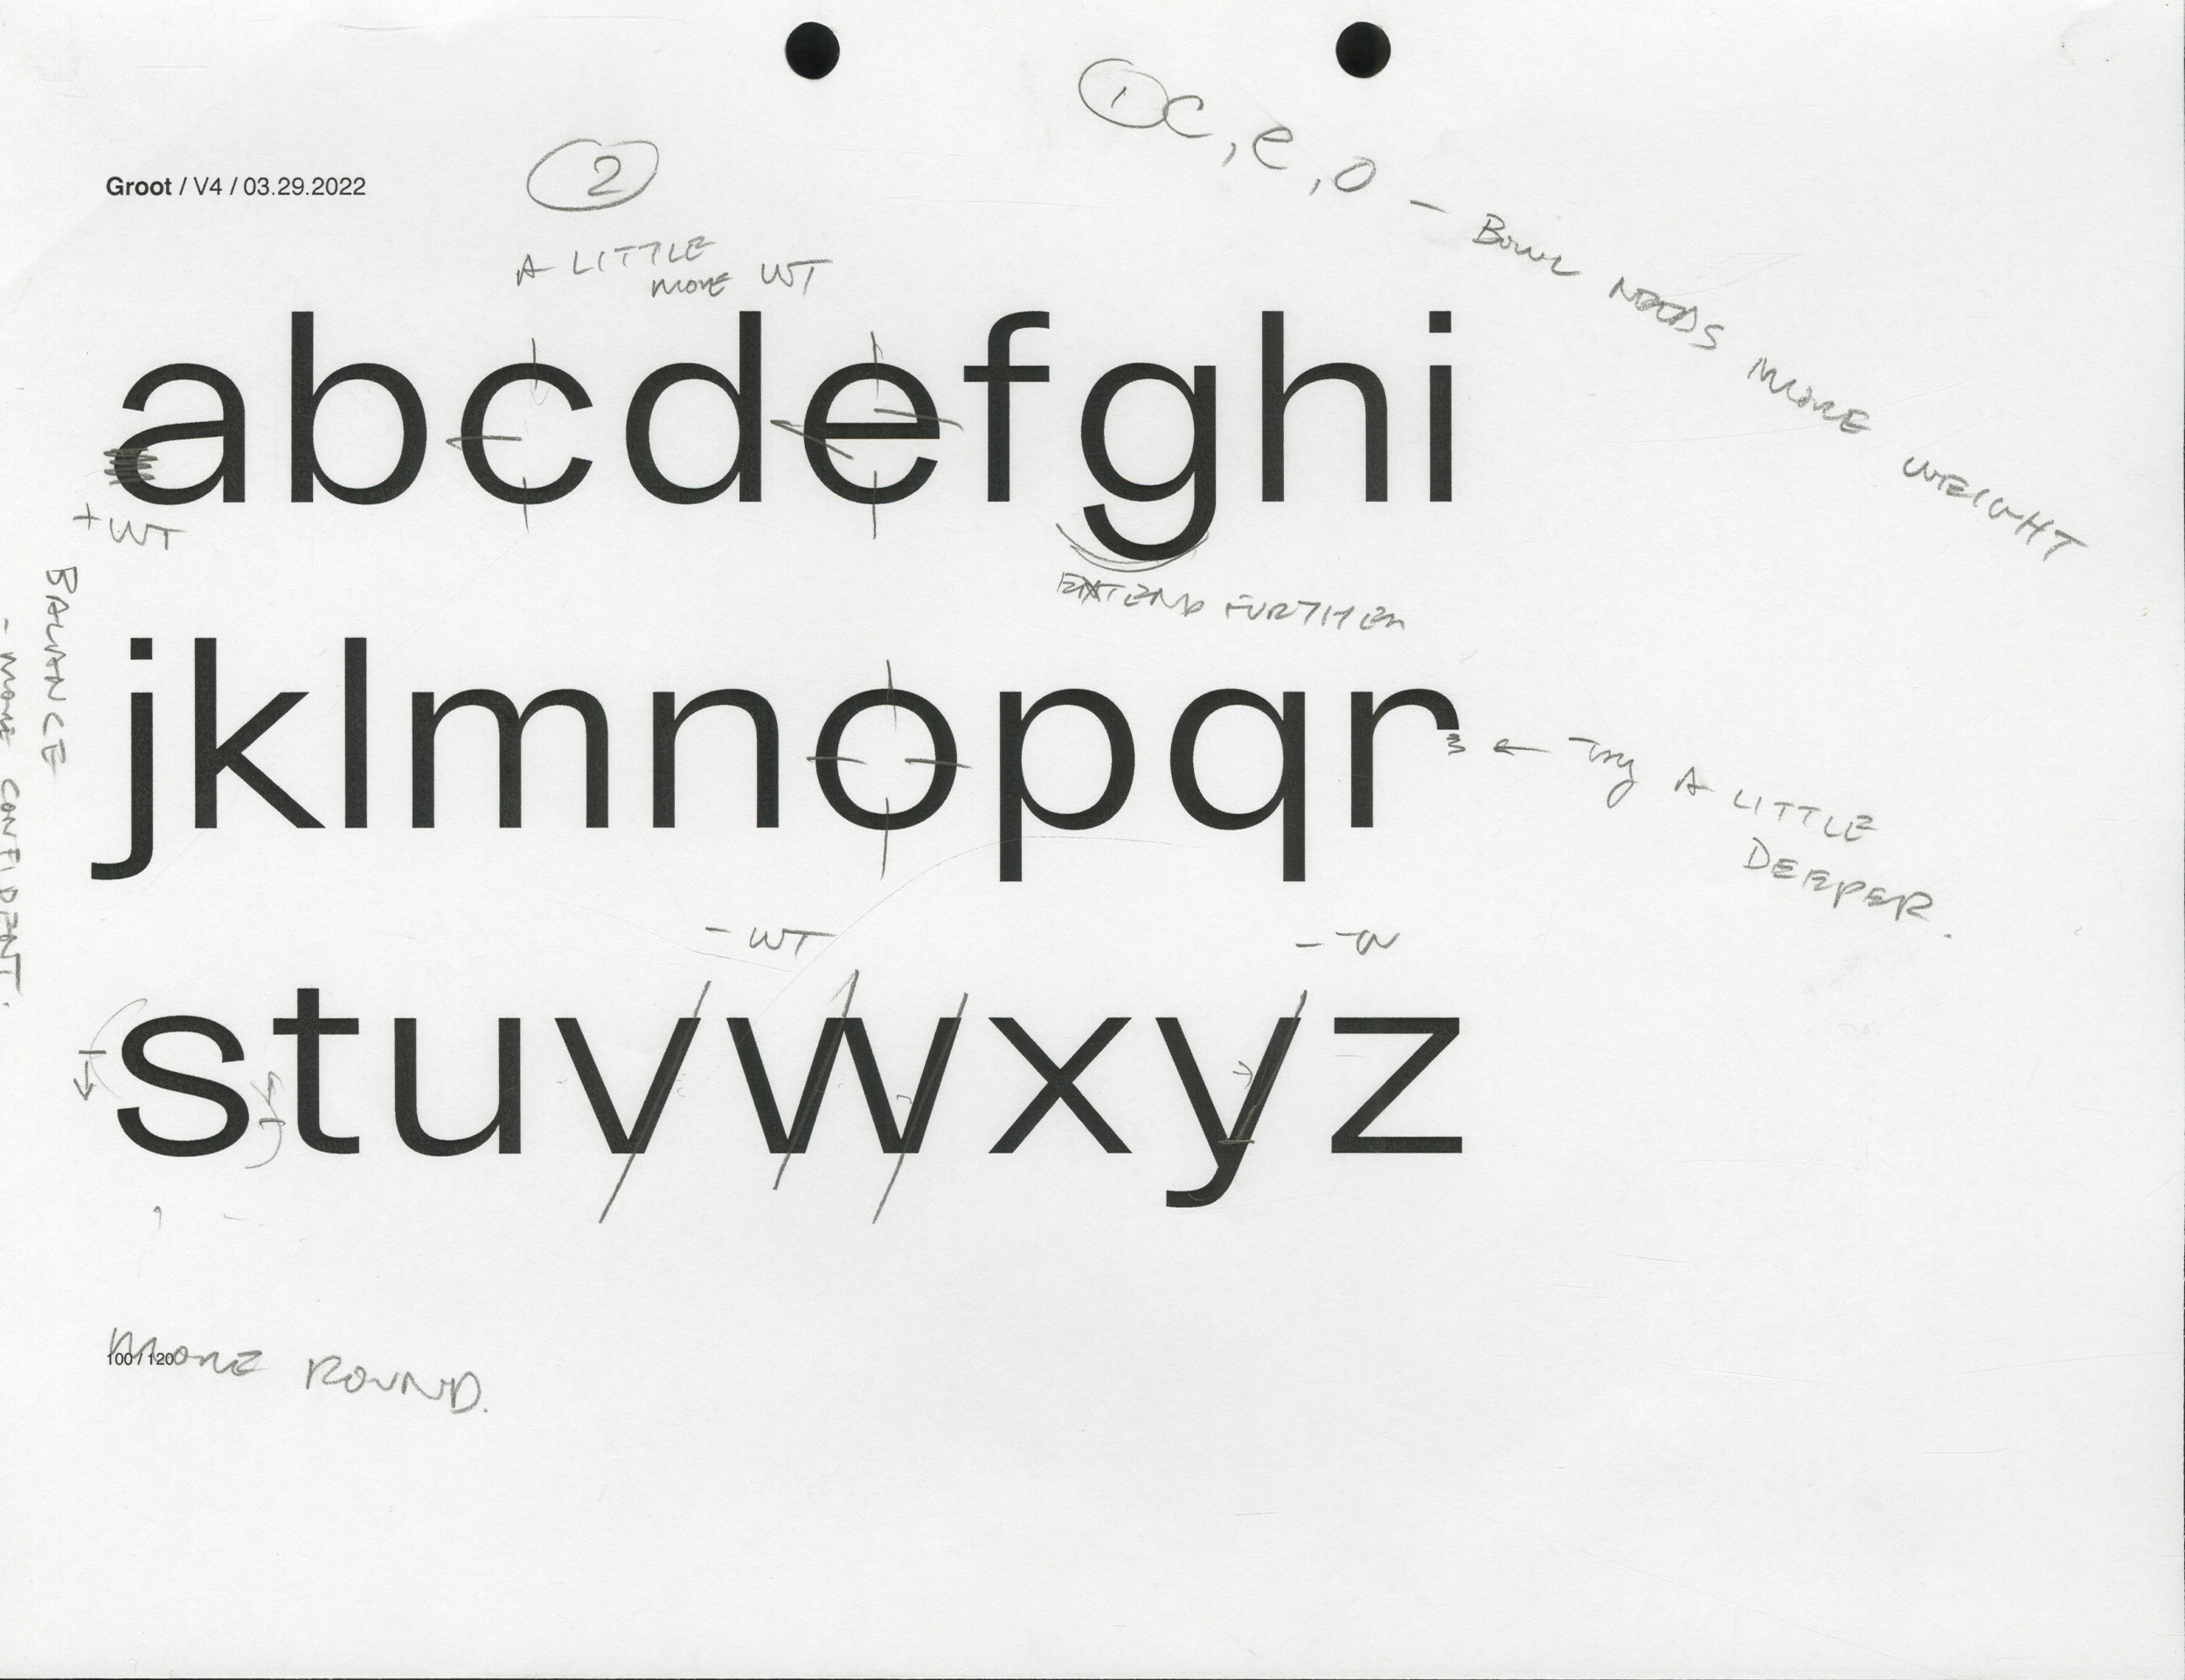 ① c, e, o – Bowl NEEDS MORE WEIGHT
Groot / V4 / 03.29.2022
②
A LITTLE
MORE WT
abcdefghi
+ WT
BALANCE
- MORE CONFIDENT.
EXTEND FURTHER
jklmnopqr
← Try A LITTLE
DEEPER.
- WT
stuvwxyz
100 / 120
MORE ROUND.